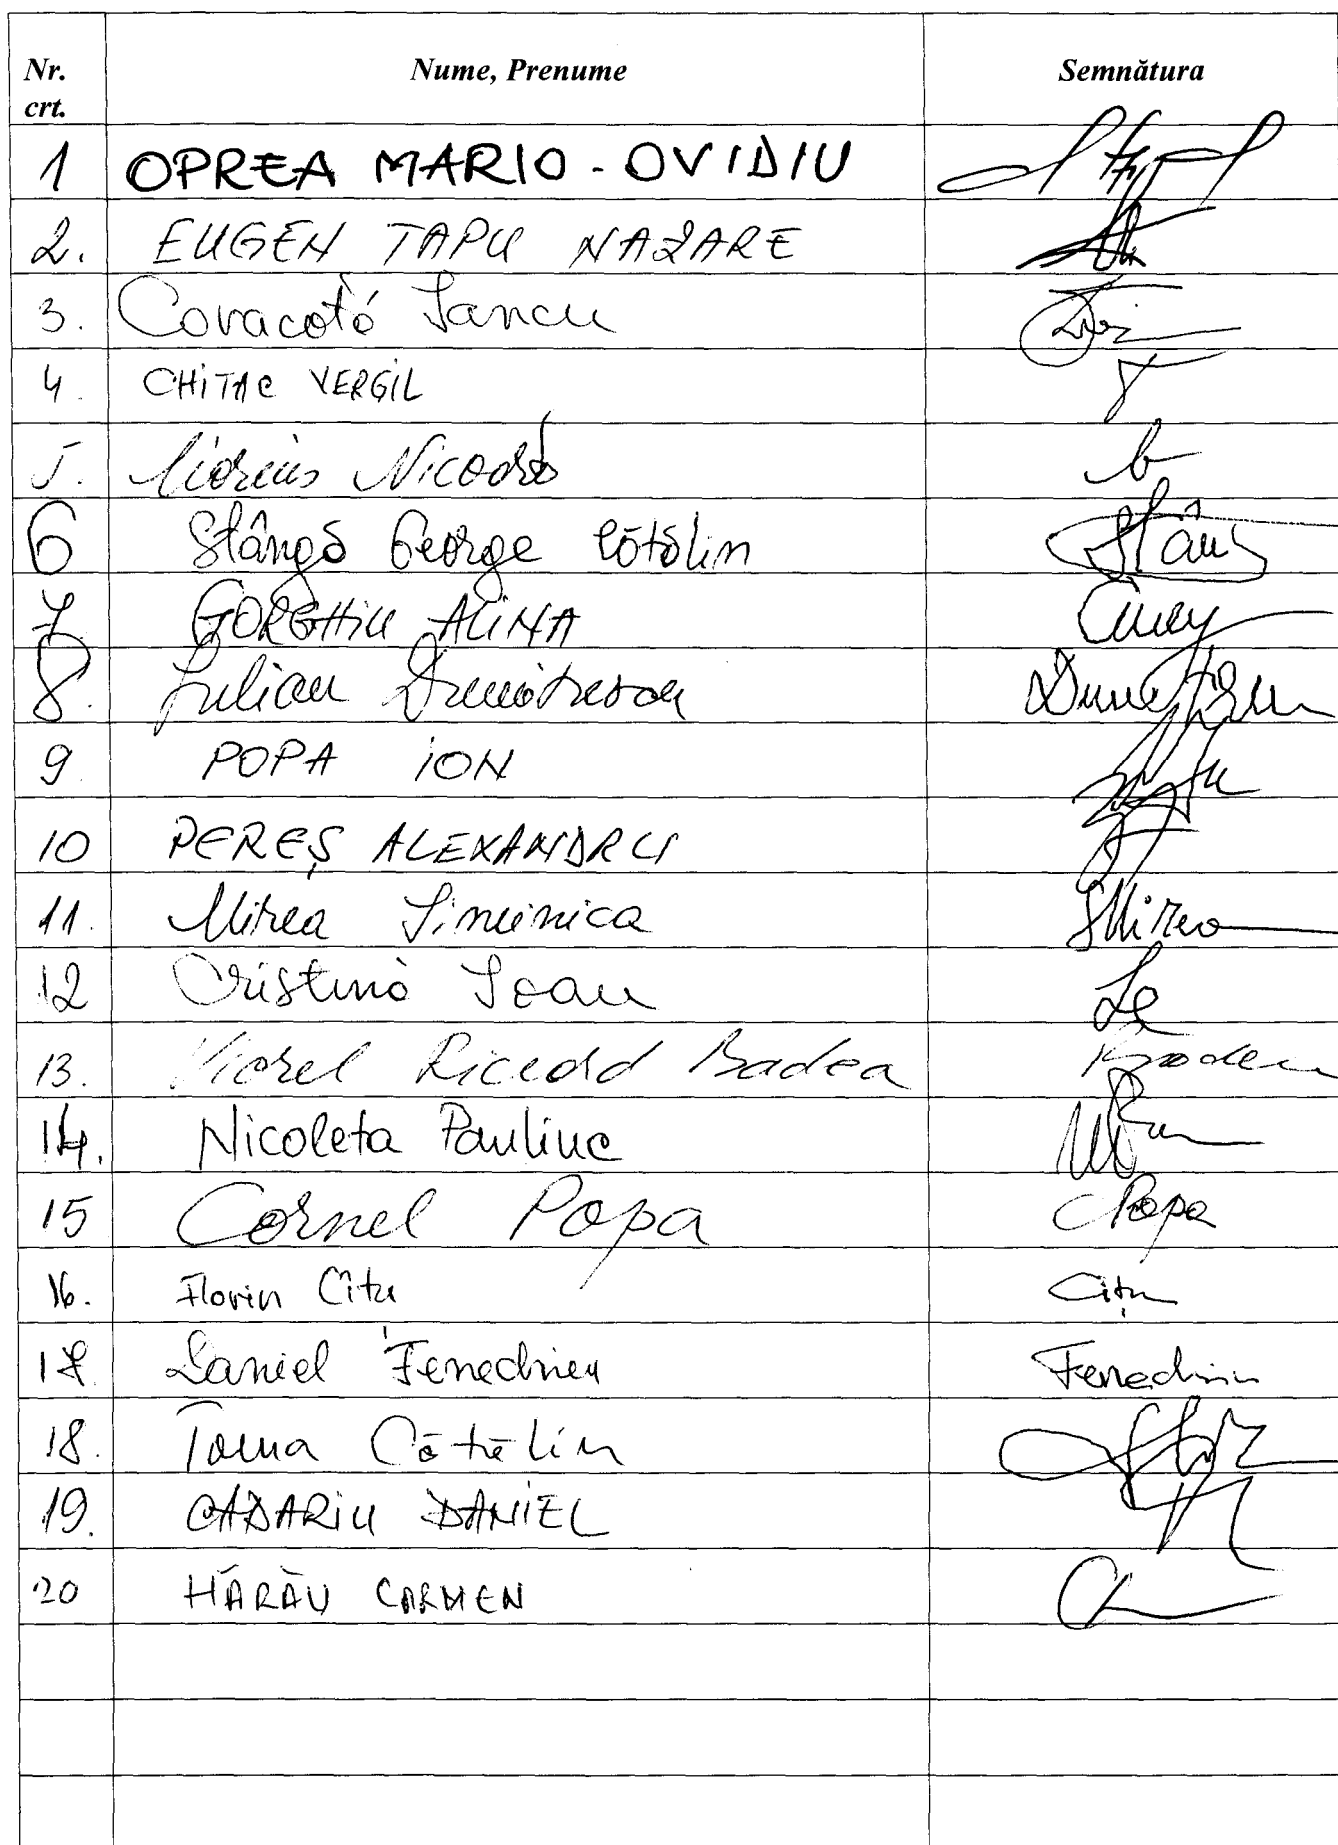 Nr. crt. Nume, Prenume Semnătura
1 OPREA MARIO-OVIDIU
2. EUGEN TAPU NAZARE
3. Iancu
4. CHITAC VERGIL
5. Nicoară
6 Stângă George Cătălin Stâng
7 GORGHIU ALINA
8. Iulian Dumitrescu
9. POPA ION
10 PEREȘ ALEXANDRU
11. Mirea Siminica SMirea
12 Cristina Ioan
13. Viorel Riceard Badea Badea
14. Nicoleta Pauliuc
15 Cornel Popa CPopa
16. Florin Cîțu Cițu
17 Daniel Fenechiu Fenechiu
18. Toma Cătălin
19. CADARIU DANIEL
20 HĂRĂU CARMEN